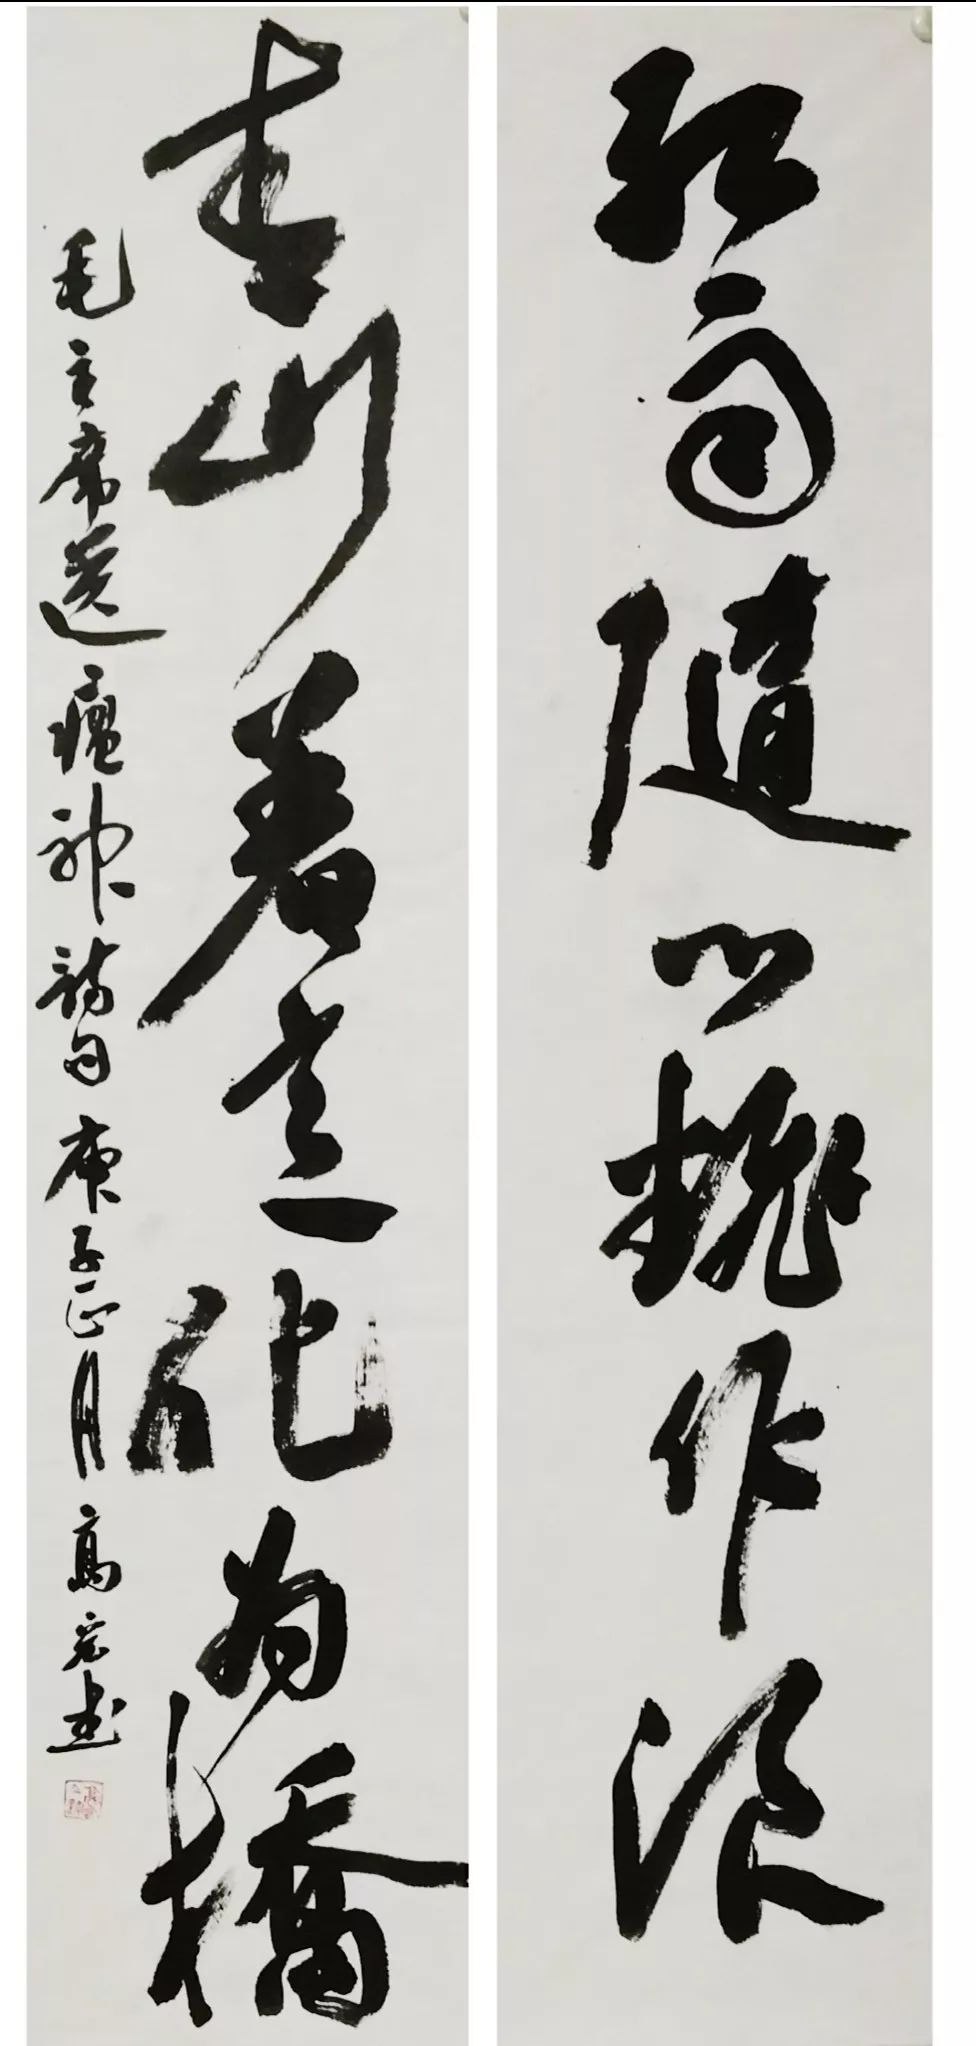 紅雨隨心翻作浪
青山着意化为橋
毛主席送瘟神詩句庚子正月高宏書